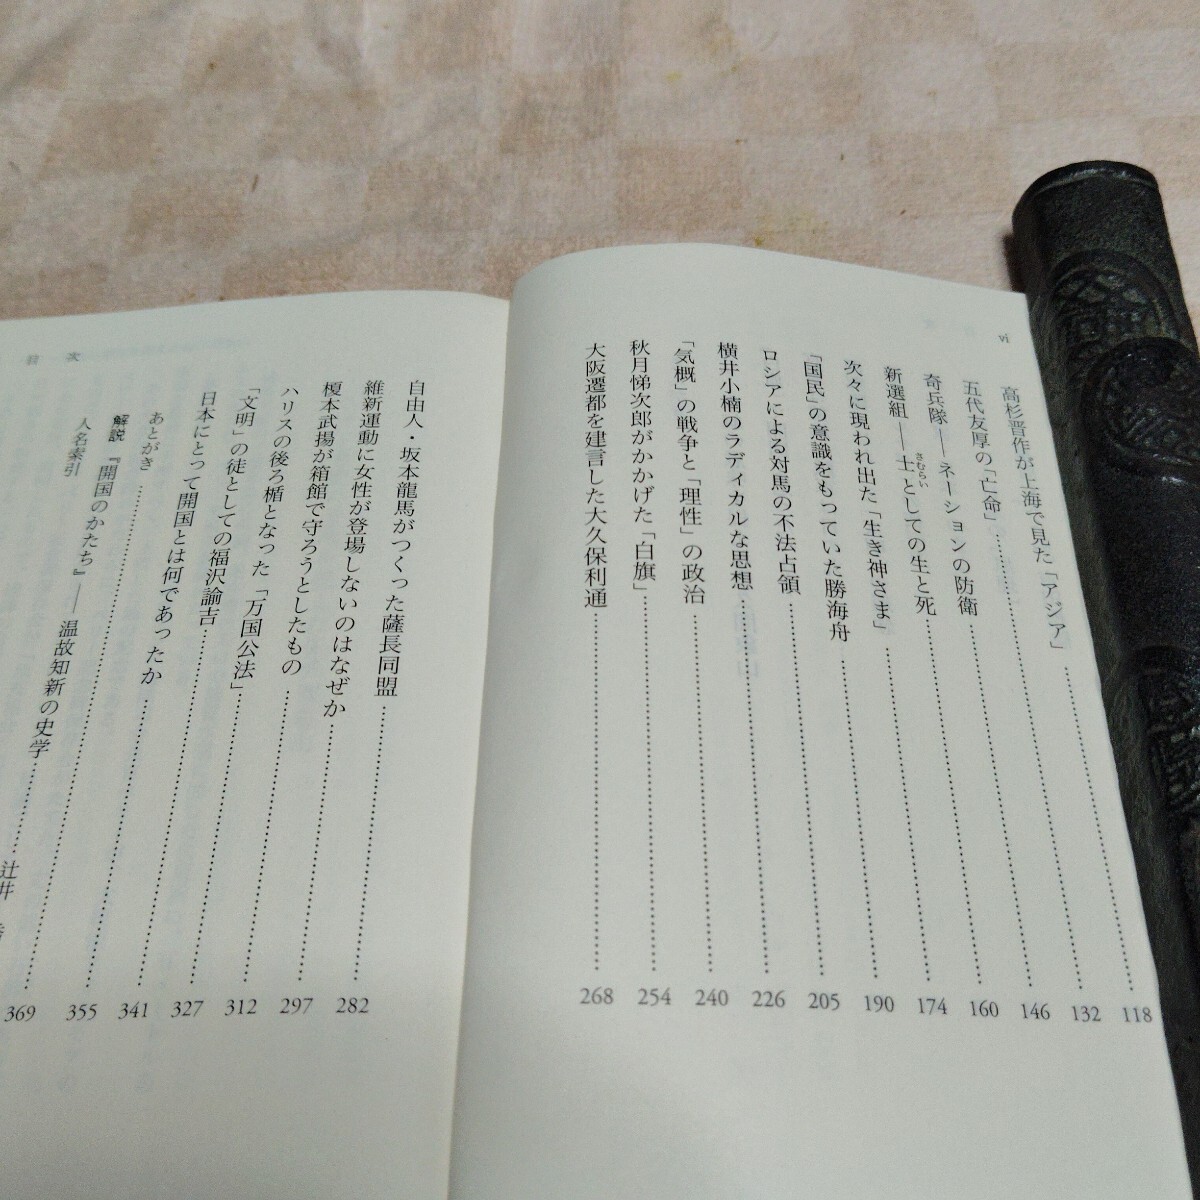 vi
高杉晋作が上海で見た「アジア」……118
五代友厚の「亡命」……132
奇兵隊――ネーションの防衛……146
新選組――士としての生と死……160
さむらい
次々に現われ出た「生き神さま」……174
「国民」の意識をもっていた勝海舟……190
ロシアによる対馬の不法占領……205
横井小楠のラディカルな思想……226
「気概」の戦争と「理性」の政治……240
秋月悌次郎がかかげた「白旗」……254
大阪遷都を建言した大久保利通……268
目次
自由人・坂本龍馬がつくった薩長同盟……282
維新運動に女性が登場しないのはなぜか……297
榎本武揚が箱館で守ろうとしたもの……312
ハリスの後ろ楯となった「万国公法」……327
「文明」の徒としての福沢諭吉……341
日本にとって開国とは何であったか……355
あとがき……369
解説『開国のかたち』――温故知新の史学……辻井
人名索引